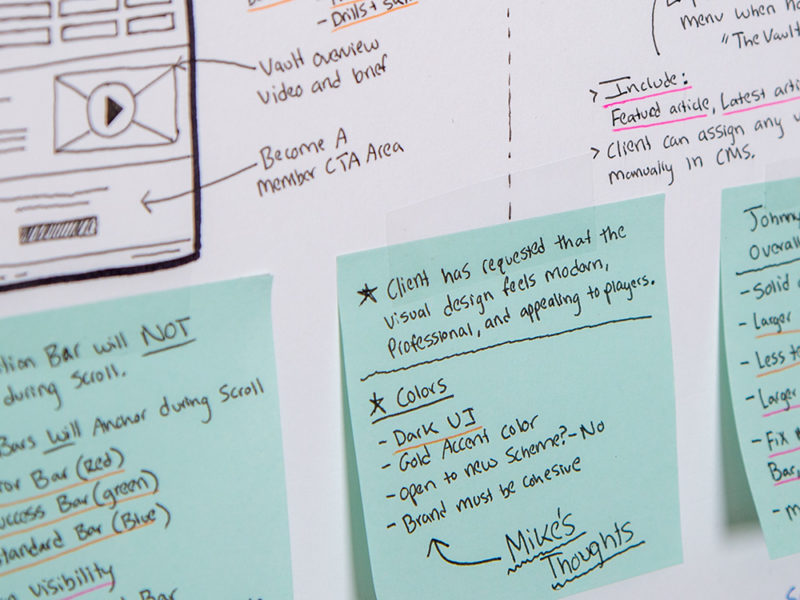 - Drills +
Vault overview
video and brief
Become A
member CTA Area
menu when
"The Vault
> Include:
Featured article, Latest
> Client can assign any
manually in CMS.
Bar will NOT
during Scroll.
Bars Will Anchor during Scroll
Bar (Red)
Bar (green)
Standard Bar (Blue)
visibility
Bar
★ Client has requested that the
visual design feels modern,
Professional, and appealing to players.
★ Colors
- Dark UI
- Gold Accent color
- open to new Scheme? - No
- Brand must be cohesive
Mike's
Thoughts
Johnny
Overall
- Solid
- Larger
- Less
- Larger
- Fix
Bar